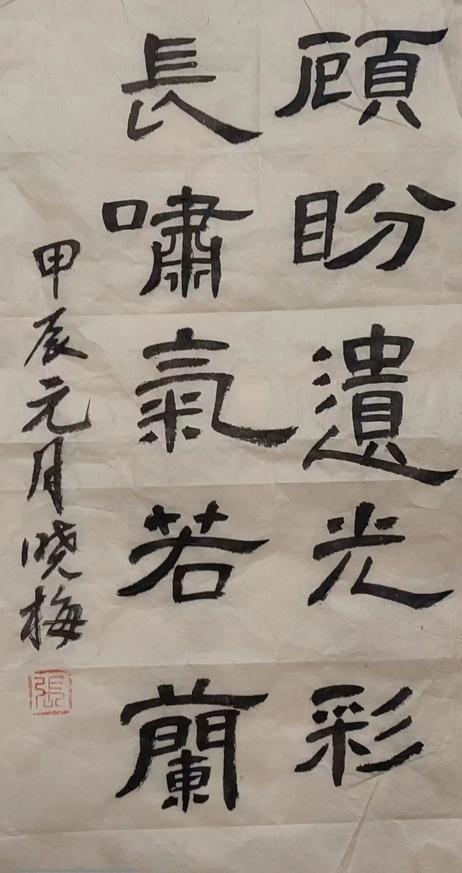 顧盼遺光彩
長嘯氣若蘭
甲辰元月晓梅
張